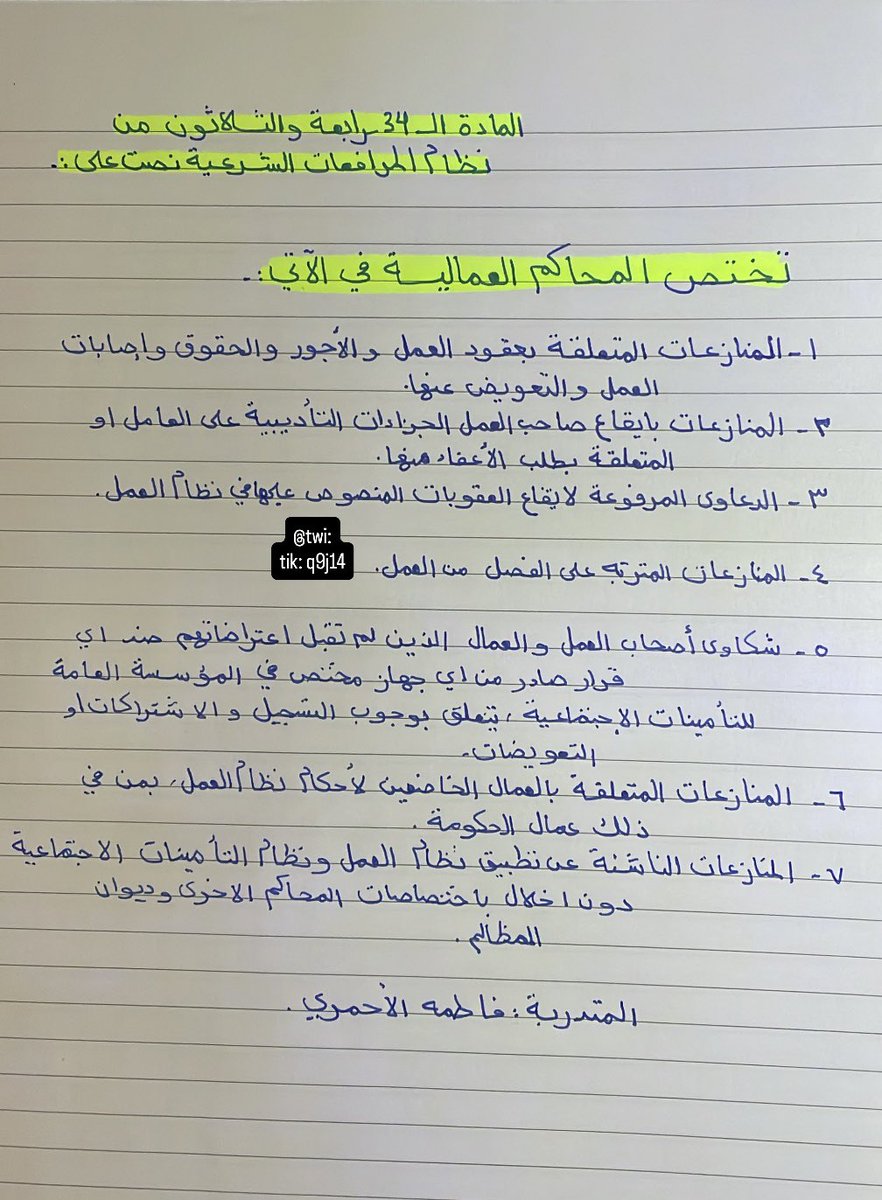 المادة الـ 34 رابعة والثلاثون من
نظام المرافعات الشرعية نصت على :.
تختص المحاكم العمالية في الآتي :.
١- المنازعات المتعلقة بعقود العمل والأجور والحقوق وإصابات
العمل والتعويض عنها.
٢- المنازعات بايقاع صاحب العمل الجزاءات التأديبية على العامل او
المتعلقة بطلب الأعفاء منها.
٣- الدعاوى المرفوعة لايقاع العقوبات المنصوص عليها في نظام العمل.
@twi:
tik: q9j14
٤- المنازعات المترتبه على الفصل من العمل.
٥- شكاوى أصحاب العمل والعمال الذين لم تقبل اعتراضاتهم ضد اي
قرار صادر من اي جهاز مختص في المؤسسة العامة
للتأمينات الإجتماعية ، يتعلق بوجوب التسجيل والاشتراكات او
التعويضات.
٦- المنازعات المتعلقة بالعمال الخاضعين لأحكام نظام العمل، بمن في
ذلك عمال الحكومة.
٧- المنازعات الناشئة عن تطبيق نظام العمل ونظام التأمينات الاجتماعية
دون اخلال باختصاصات المحاكم الاخرى وديوان
المظالم.
المتدربة : فاطمه الأحمري.